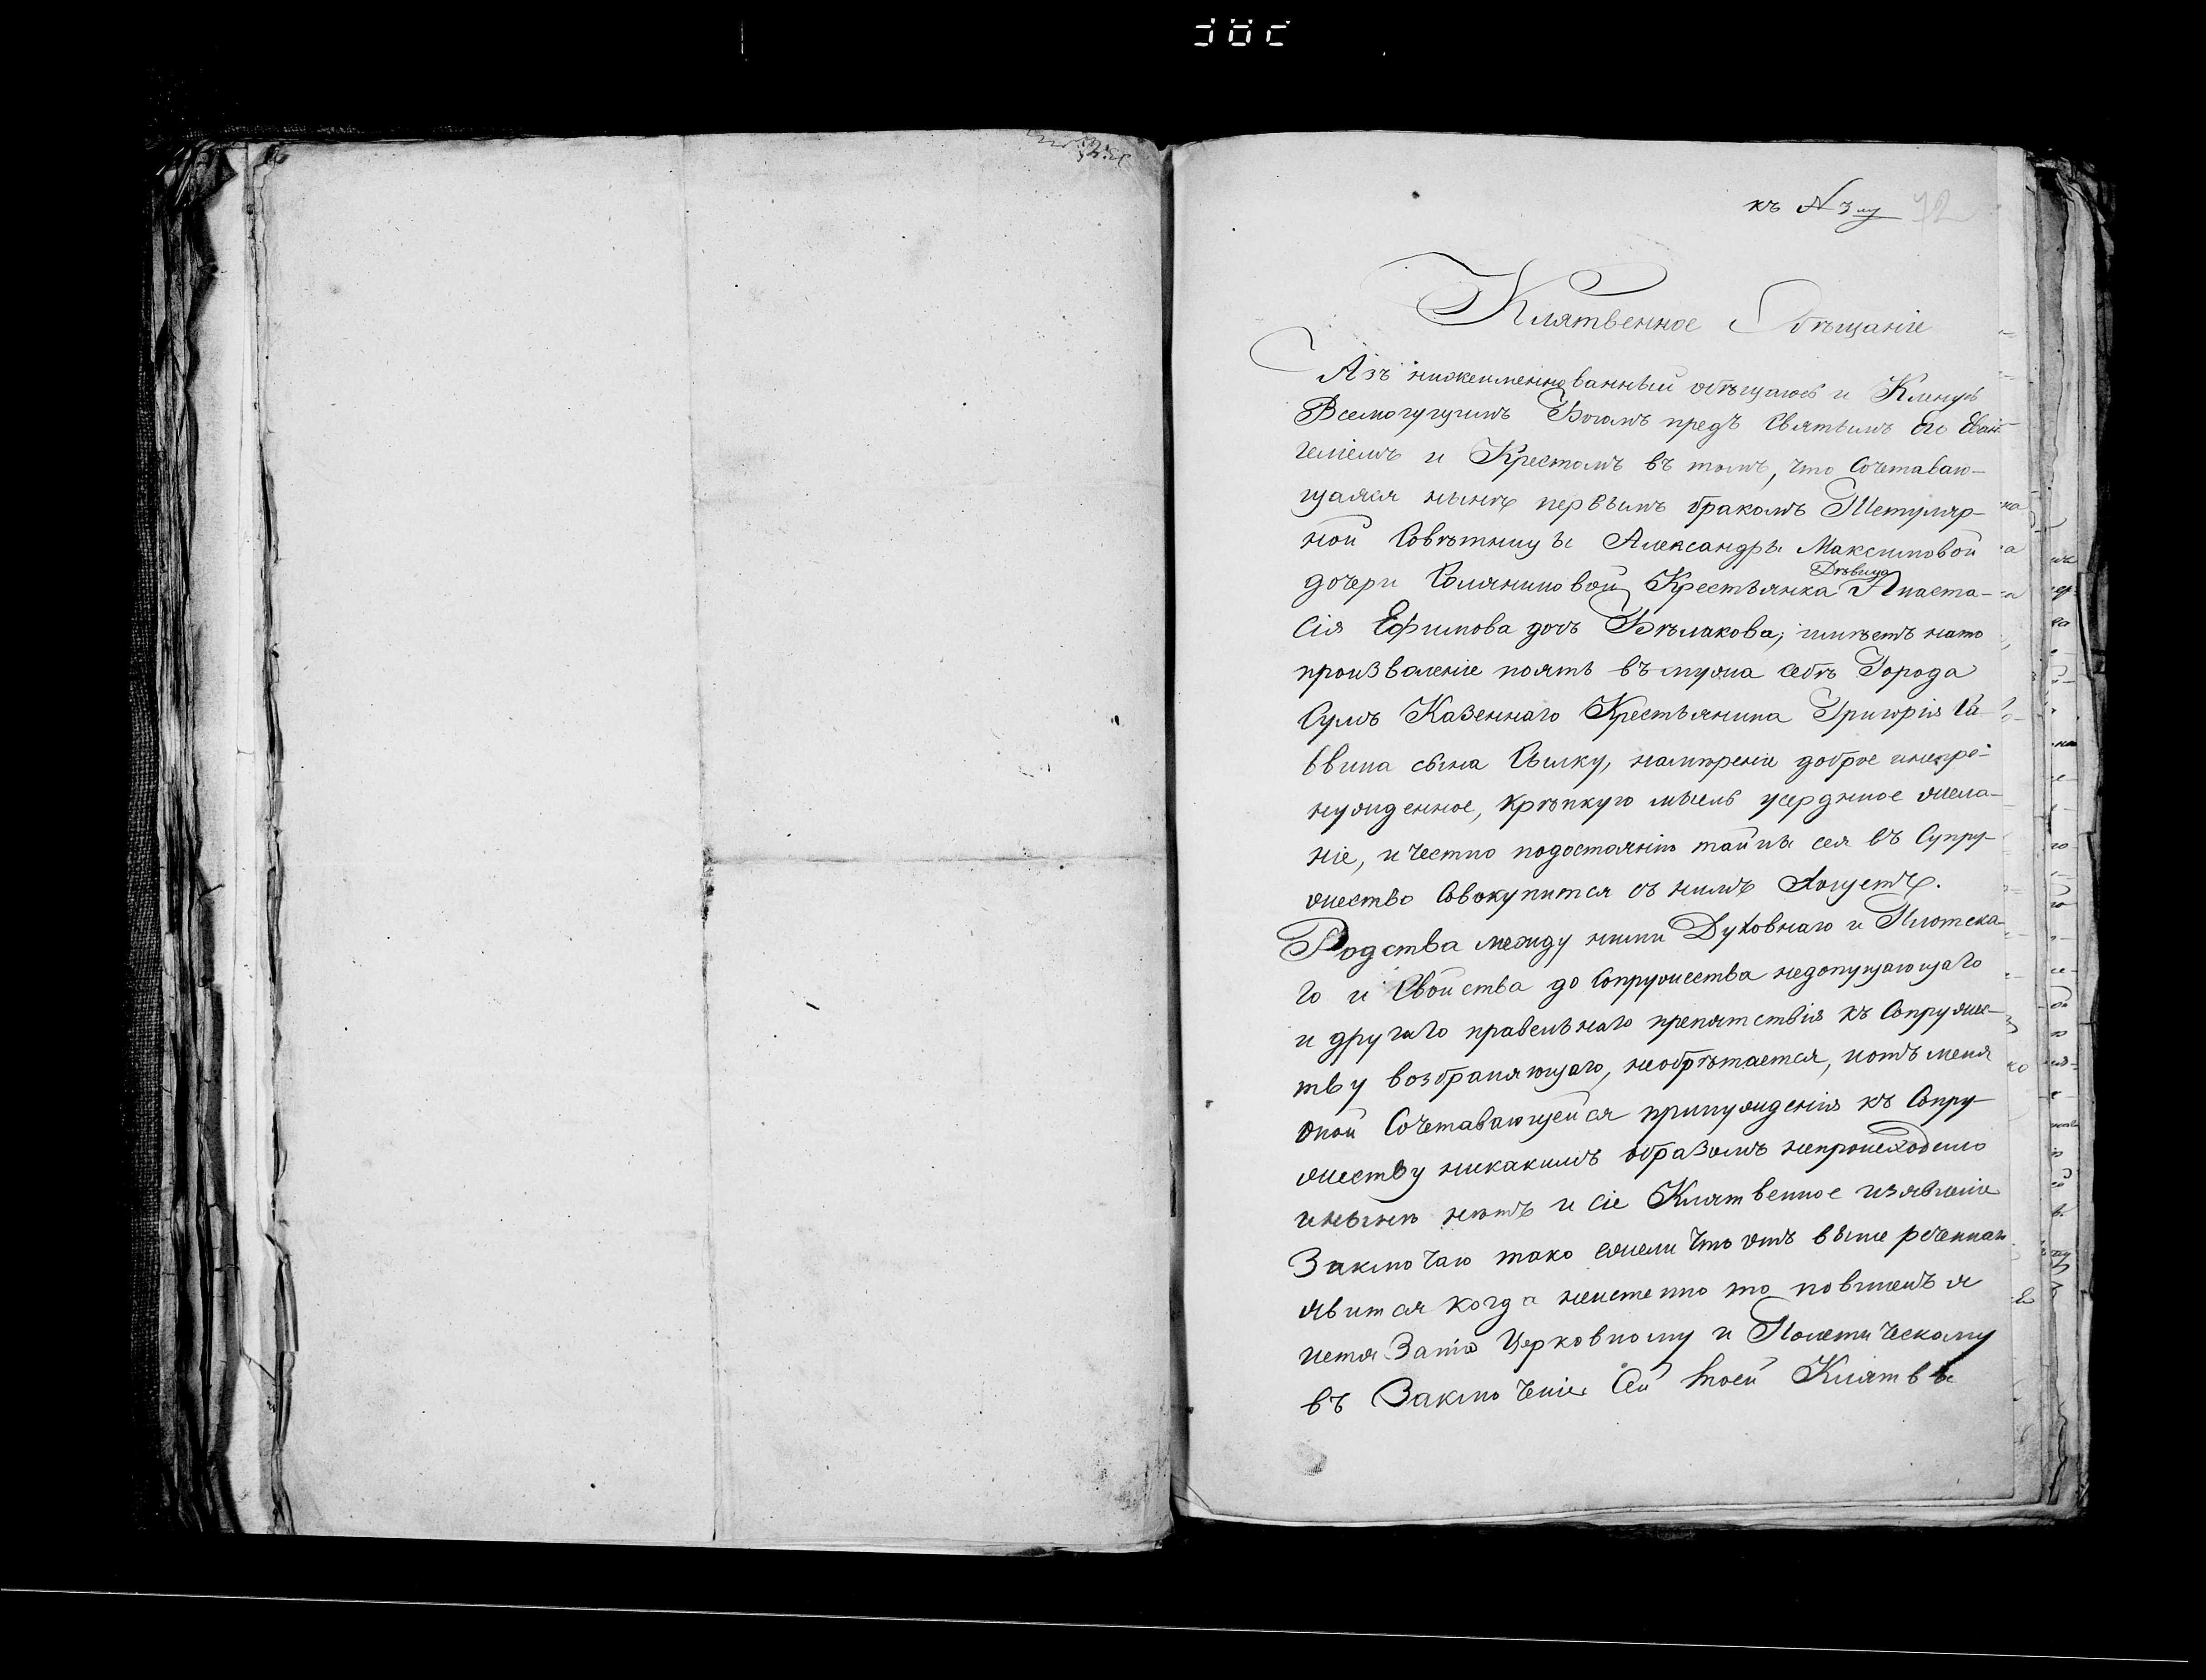 къ № 3му 72
Клятвенное Обѣщаніе
Азъ нижеименнованный обѣщаюсь и Кленусь
Всемогущимъ Богомъ предъ Святымъ Его Еван-
геліемъ и Крестомъ въ томъ, что Сочетаваю-
щаяся нынѣ первымъ бракомъ Тетуляр-
ной Совѣтницы Александры Максимовой
дочери Соляниковой Крестьянка Дѣвица Анаста-
сія Ефимова дочь Бѣлакова, имѣетъ нато
произваленіе поять въ мужа себѣ Города
Сумъ Казеннаго Крестьянина Григорія Са-
ввина сына Сылку, намѣреніе доброе инепре-
нужденное, крѣпкую мысль усердное жела-
ніе, и честно подостоянію тайны сея въ Супру-
жество Совокупится съ нимъ
Родства между ними Духовнаго и Плотска-
го и Свойства до Сопружества недопущающаго
и другаго правельнаго препятствія къ Сопружес-
тву возбраняющаго, необрѣтается, иотъ меня
оной Сочетавающейся принужденія къ Сопру-
жеству никакимъ образомъ непроисходело
инынѣ нѣтъ и сіе Клятвенное изявленіе
Заключаю тако ежели что отъ выше реченнаго
явится когда неистенно то повиненъ я
истязанію Церковному и Полетическому
въ Заключеніе Сей моей Клятвы